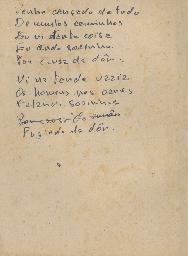 Venho cançado de tudo
De muitos caminhos
Eu vi tanta coisa
Eu ando sozinho
Por causa da dôr.
Vi na tenda vazia
Os homens nas
Falando sozinho
Fugindo da dôr.